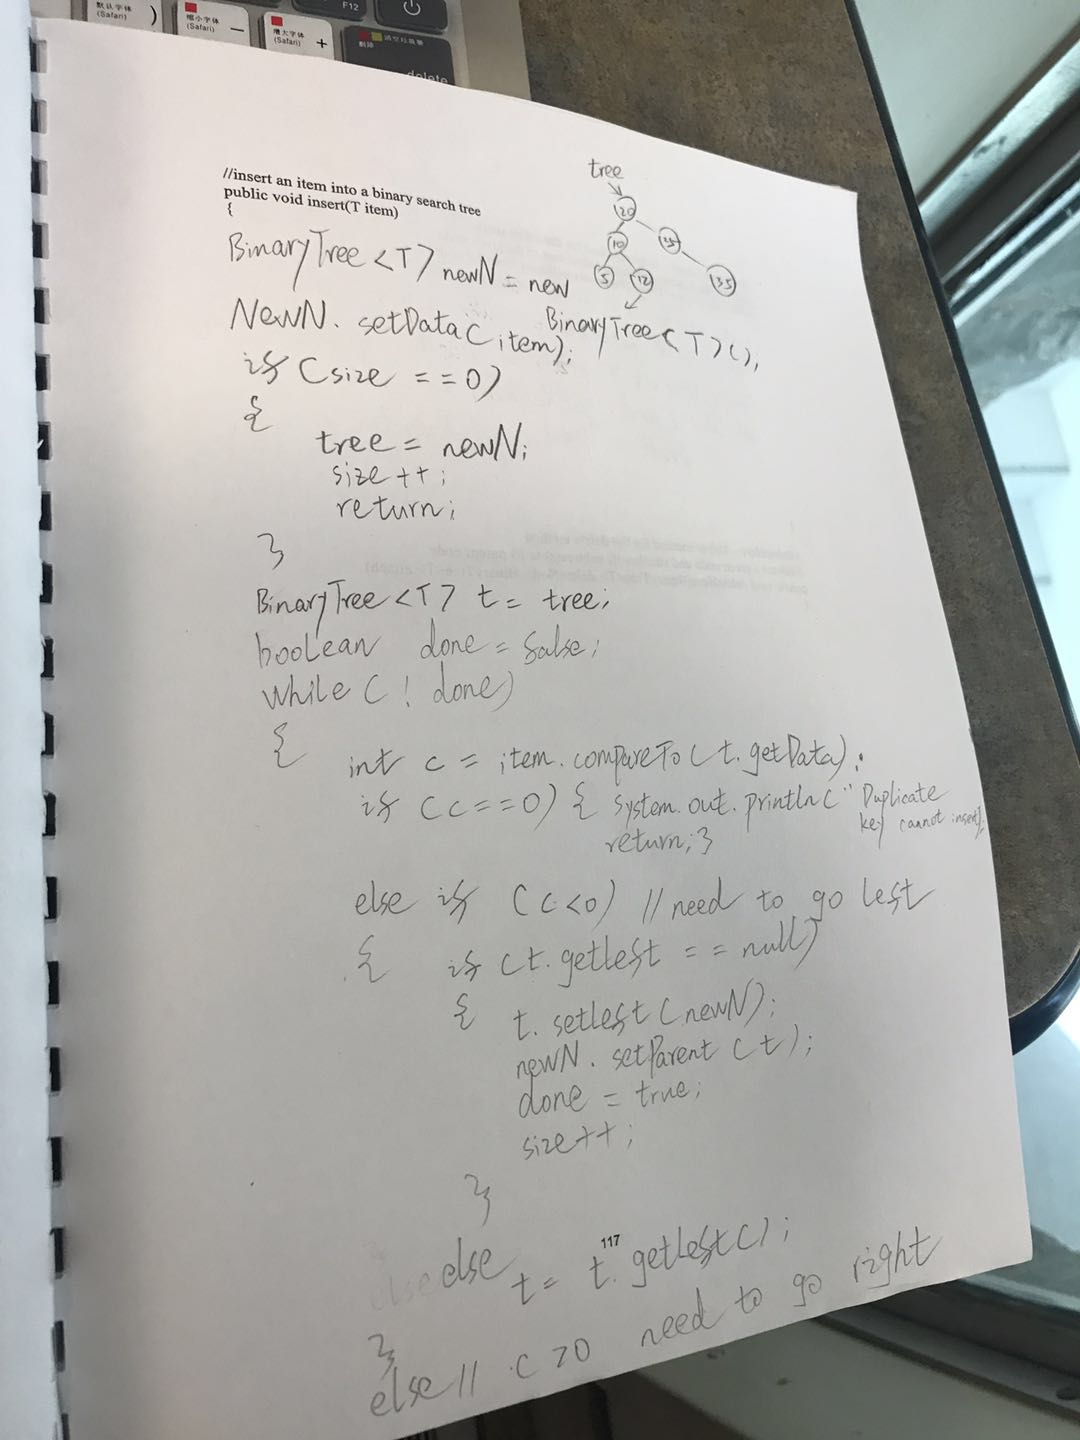 默认字体
(Safari)
)
缩小字体
(Safari)
—
增大字体
(Safari)
+
F12
删除
清空垃圾篓
delete
//insert an item into a binary search tree
public void insert(T item)
{
tree
20
10
25
5
12
35
BinaryTree <T> newN = new
BinaryTree<T>();
NewN. setData(item);
if (size ==0)
{
tree = newN;
size ++;
return;
}
BinaryTree <T> t = tree;
boolean done = false;
while (! done)
{
int c = item. compareTo (t. getData);
if (c==0) { system. out. println(" Duplicate
key cannot insert);
return;}
else if (c<0) // need to go left
{ if (t. getleft == null)
{ t. setleft (newN);
newN. setParent (t);
done = true;
size++;
}
else else
t = t. getleft();
117
}
else // c >0 need to go right